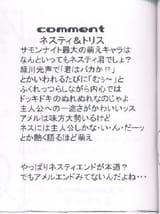 comment
ネスティ&トリス
サモンナイト最大の萌えキャラは
なんといってもネスティ君でしょ?
緑川光声で「君はバカか!?」
とかいわれるたびに「むぅ~」と
ふくれっつらしながら内心では
ドッキドキのぬれぬれなのじゃよ
主人公への一途さがかわいいっス
アメルは味方大勢いるけど
ネスには主人公しかな・い・ん・だーッ
とか熱く語るほど萌え
やっぱりネスティエンドが本道?
でもアメルエンドみてないんだよね・・・